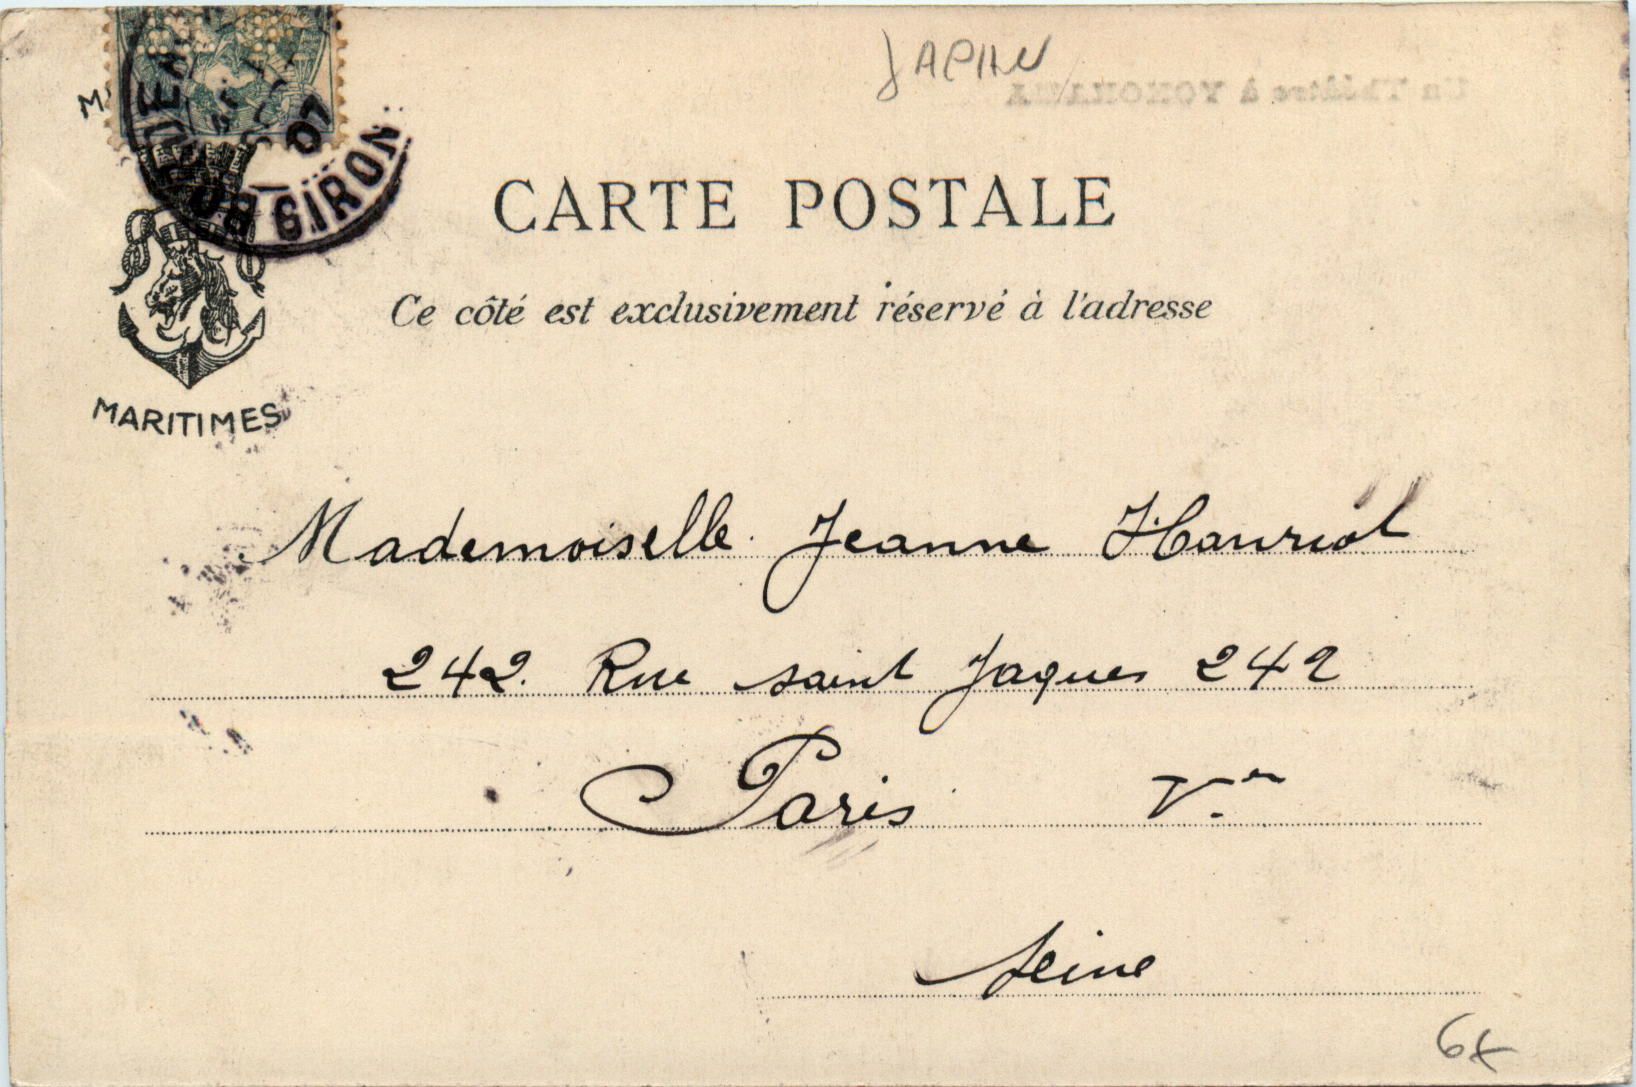 JAPAN
Un Théâtre à YOKOHAMA
07
GIRON
CARTE POSTALE
Ce côté est exclusivement réservé à l'adresse
MARITIMES
Mademoiselle Jeanne Hauriot
242. Rue saint Jaques 242
Paris V.
Seine